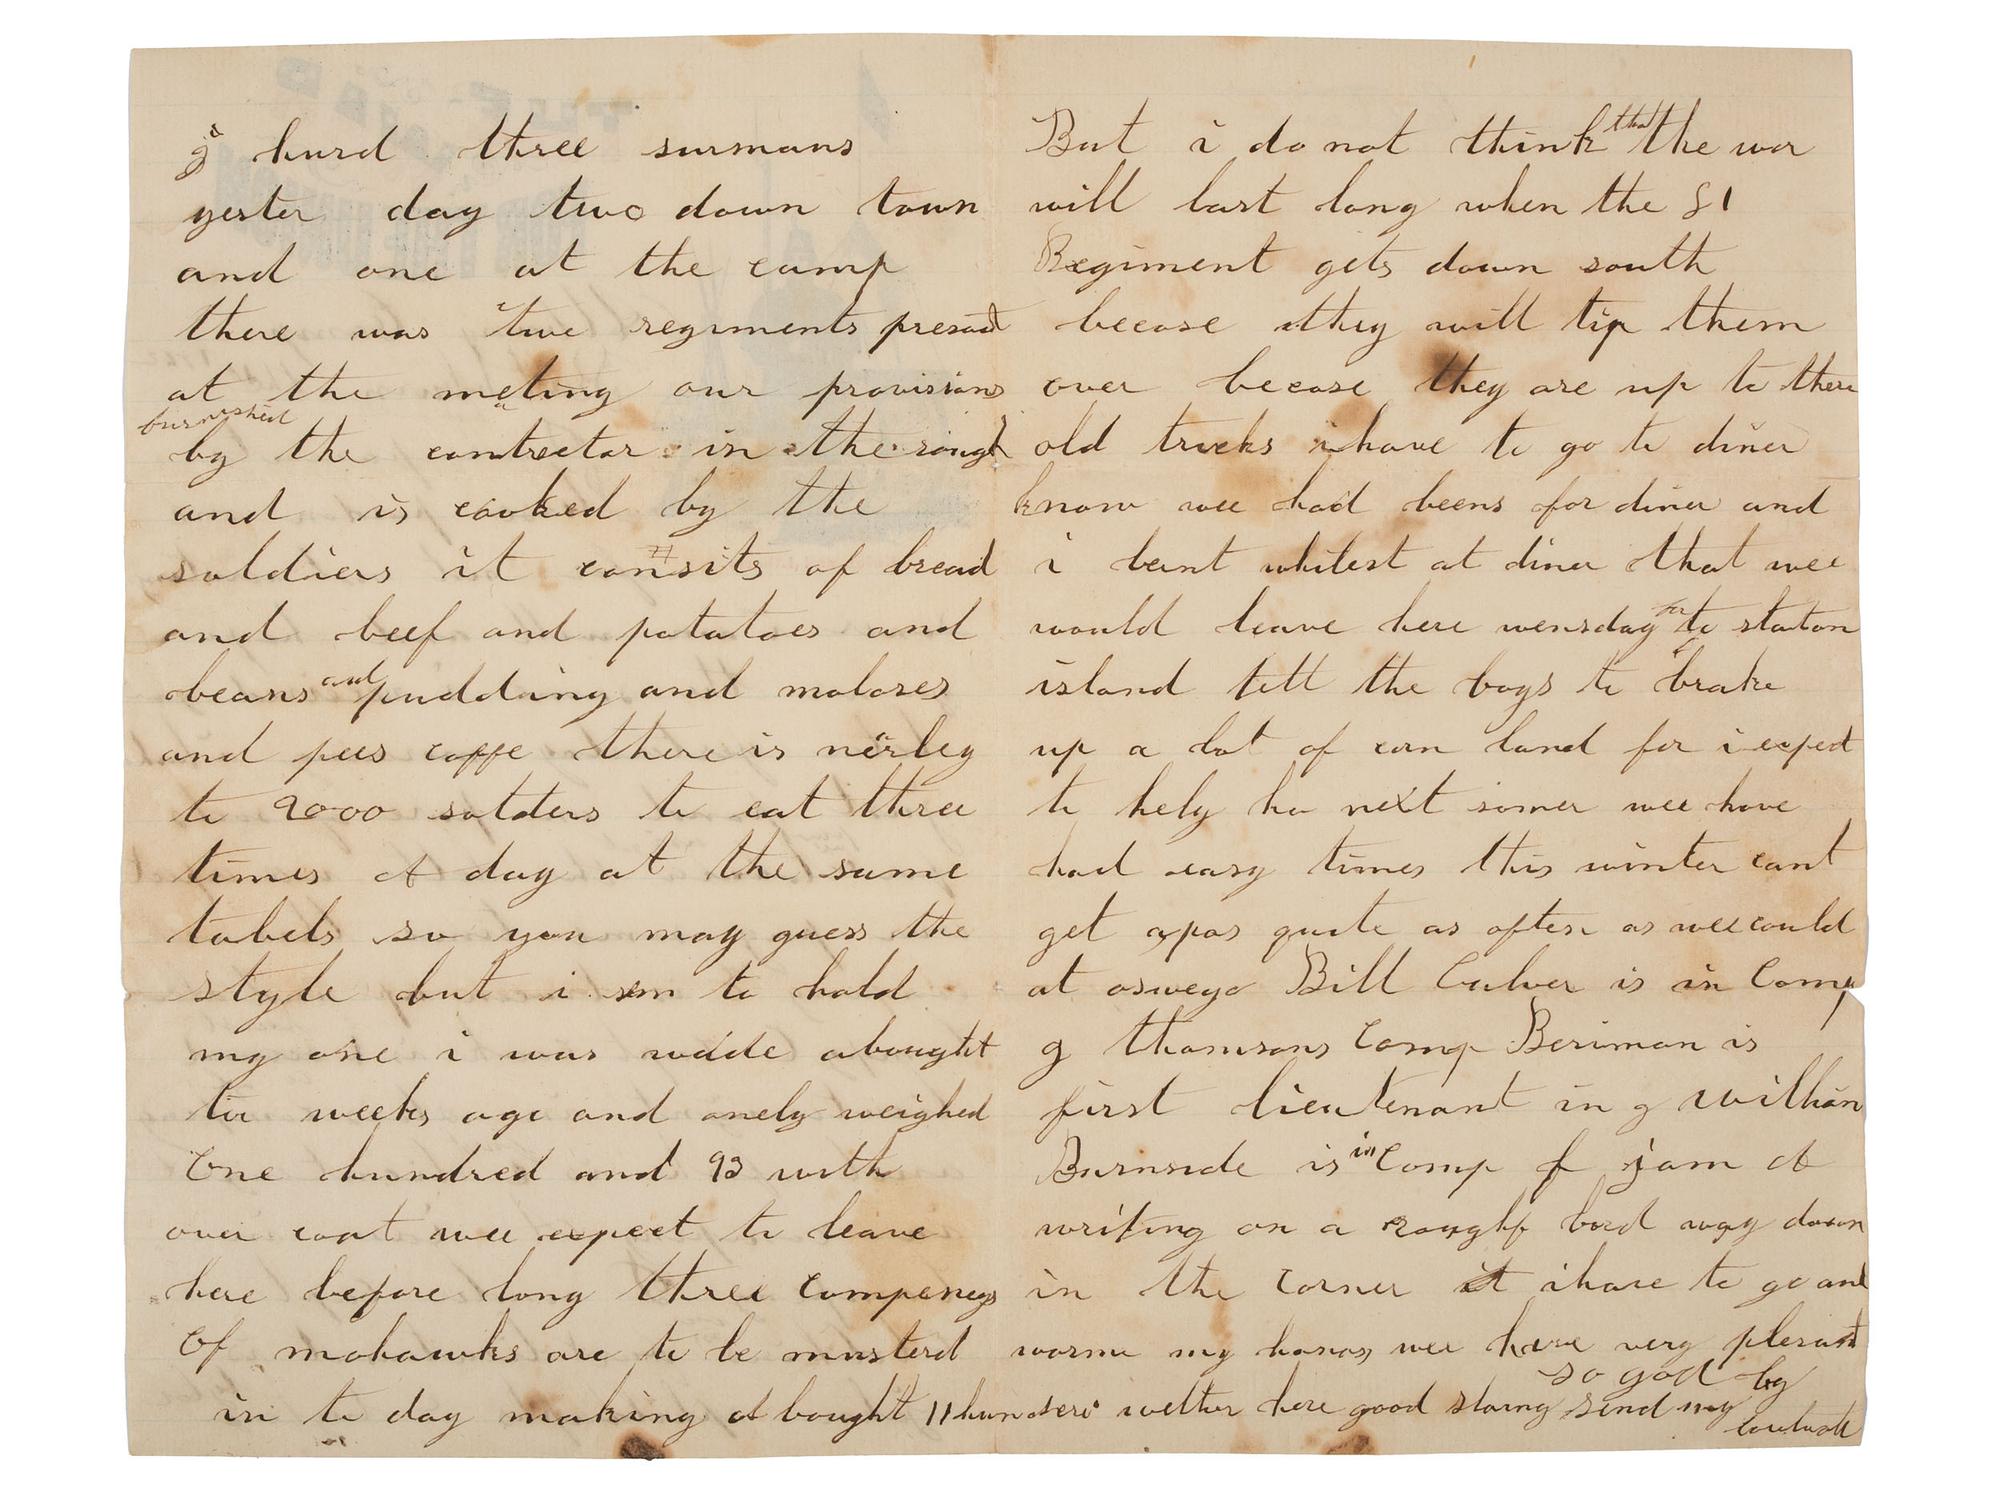 i hurd three surmans
yester day two down town
and one at the camp
there was two regiments present
at the meting our provisions
burnished
by the contrector in the rough
and is cooked by the
soldiers it consits of bread
and beef and potatoes and
beans and pudding and molases
and pees coffe there is nerley
to 9000 solders to eat three
times A day at the same
tabels so you may guess the
style but i em to hold
my one i was wade abought
tw weeks ago and onely weighed
One hundred and 93 with
over coat wee expect to leave
here before long three compeneys
Of mohawks are to be musterd
in to day making A bought 11 hunderd
But i do not think that the war
will last long when the 81
Regiment gets down south
becose they will tip them
over becose they are up to there
old tricks i have to go to diner
know wee had beens for diner and
i bent whilest at diner that wee
would leave here wensday for to staton
island tell the boys to brake
up a lot of corn land for i expect
to help ho next somer wee have
had easy times this winter cant
get apas quite as often as wee could
at oswego Bill Culver is in Comp
g thomsons Comp Beriman is
first lieutenant in g William
Burnside is in Comp f j am A
writing on a rough bord way down
in the corner i have to go and
worme my hands wee have very plesant
wether here good slaing send my
so god by